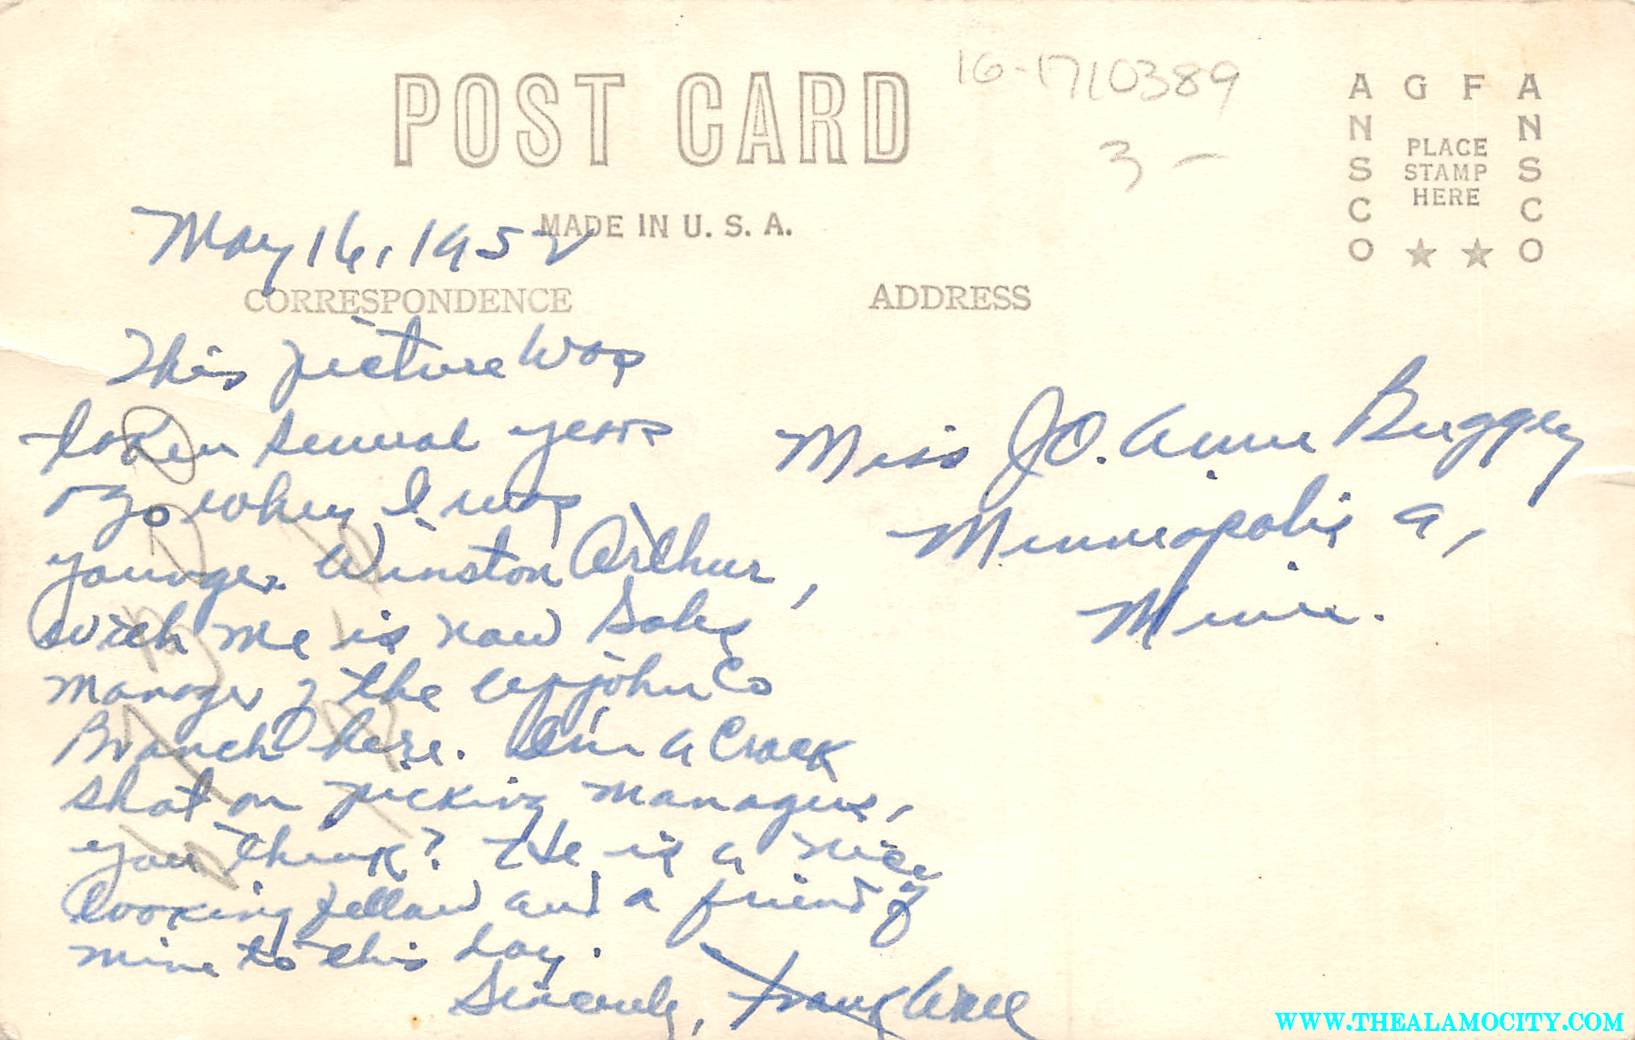 POST CARD
16-1710389
3 -
A G F A
ANSCO
ANSCO
PLACE
STAMP
HERE
MADE IN U. S. A.
May 16, 1952
CORRESPONDENCE
ADDRESS
This picture was
taken several years
ago when I was
younger. Winston Arthur,
with me is now Sales
manager of the Upjohn Co
Branch here. I'm a Crack
shot on picking managers,
you think? He is a nice
looking fellow and a friend of
mine to this day.
Sincerely, Frank Wall
Miss JO. Anne Buggey
Minneapolis
Minn.
WWW.THEALAMOCITY.COM